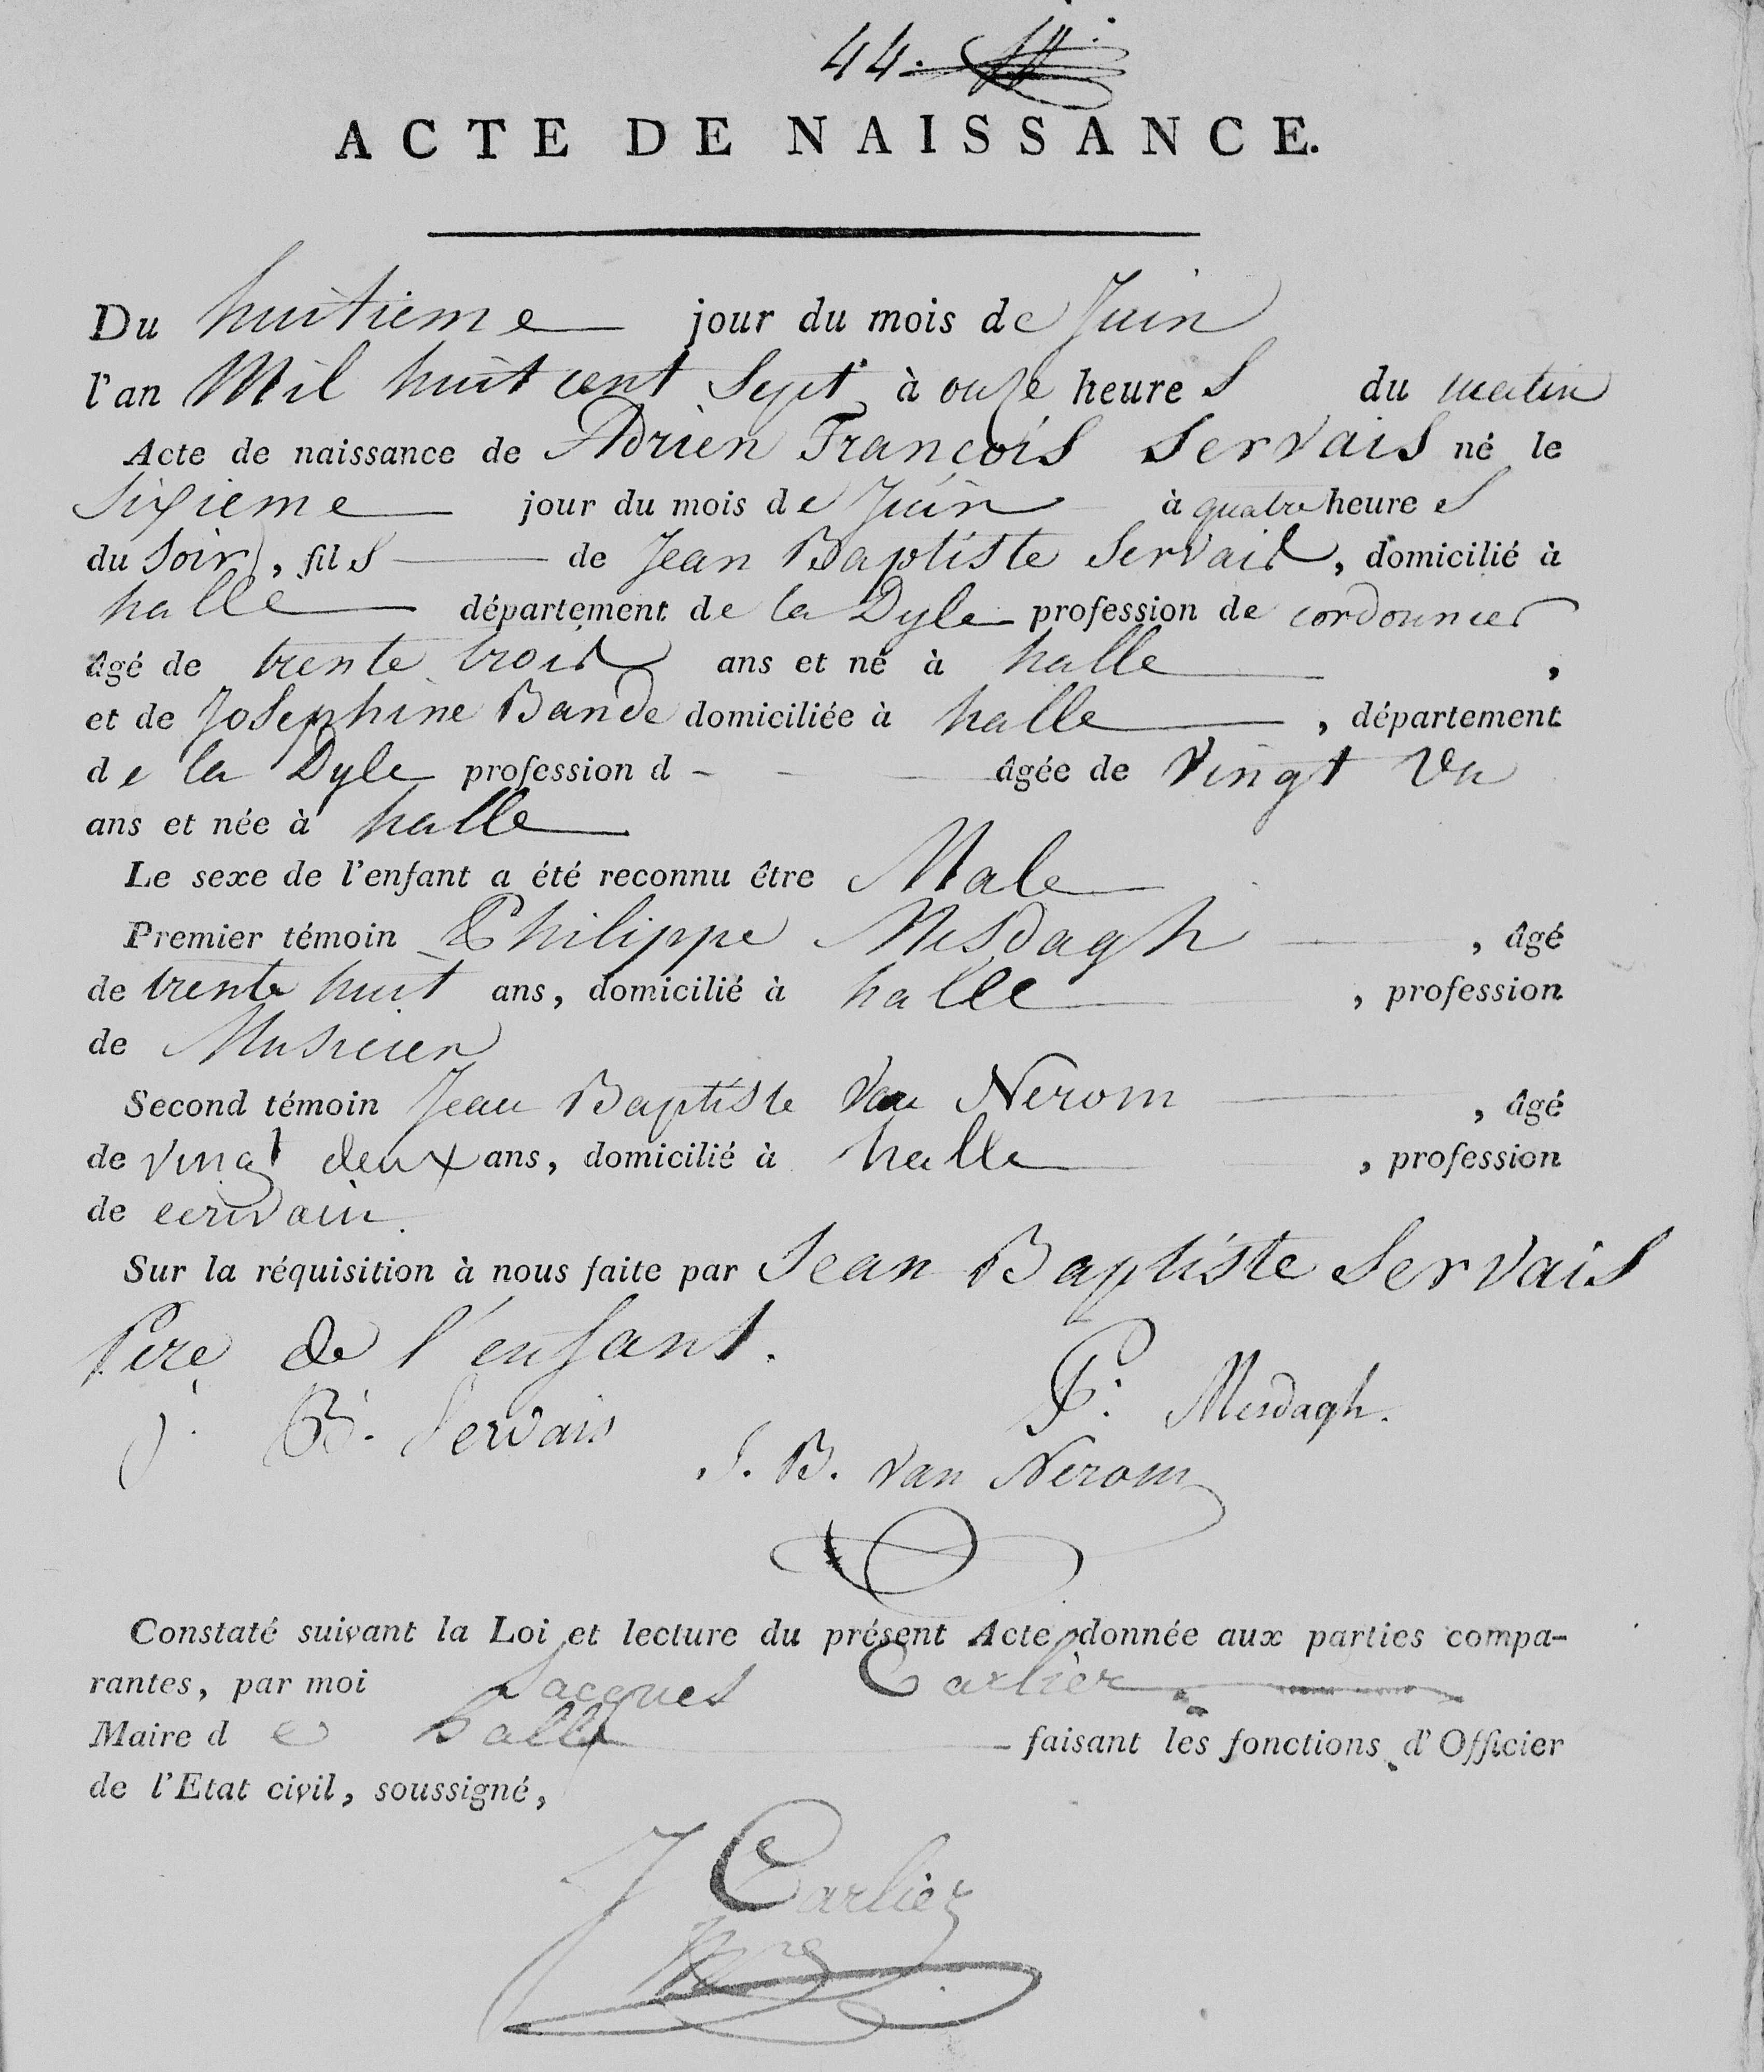 44.
ACTE DE NAISSANCE.
Du huitieme jour du mois de Juin
l'an Mil huit cent Sept à onze heures du matin
Acte de naissance de Adrien François Servais né le
Sixieme jour du mois de Juin à quatre heures
du Soir, fils de Jean Baptiste Servais, domicilié à
halle département de la Dyle profession de cordonnier
âgé de trente trois ans et né à halle,
et de Josephine Bande domiciliée à halle, département
de la Dyle profession d - âgée de Vingt Un
ans et née à halle
Le sexe de l'enfant a été reconnu être Male
Premier témoin Philippe Mesdagh, âgé
de trente huit ans, domicilié à halle, profession
de Musicien
Second témoin Jean Baptiste Van Nerom, âgé
de vingt deux ans, domicilié à halle, profession
de ecrivain.
Sur la réquisition à nous faite par Jean Baptiste Servais
Pere de l'enfant.
P. Mesdagh.
J. B. Servais
J. B. Van Nerom
Constaté suivant la Loi et lecture du présent Acte donnée aux parties compa-
rantes, par moi Jacques Carlier
Maire de halle faisant les fonctions d'Officier
de l'Etat civil, soussigné,
J Carlier